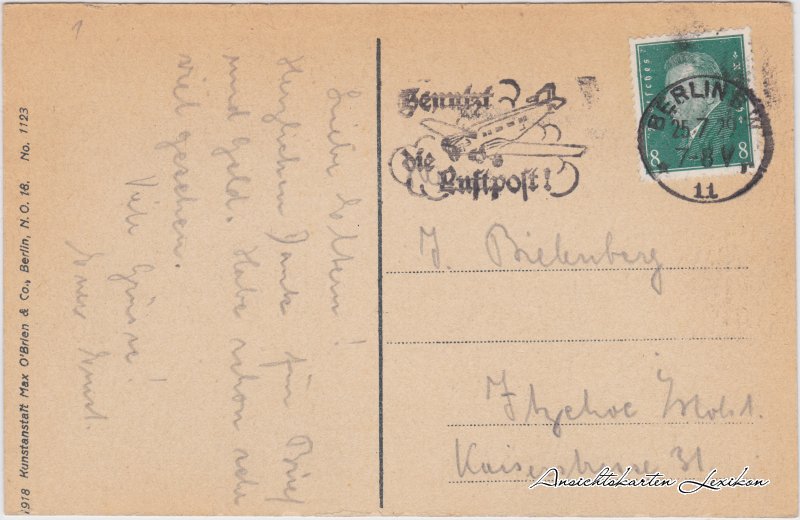 1
Liebe Eltern!
Herzlichen Dank für Brief
und Geld. Habe schon sehr
viel gesehen.
Viele Grüsse!
Euer Ernst.
1918 Kunstanstalt Max O'Brien & Co., Berlin, N. O. 18. No. 1123
Benutzt
die
Luftpost!
BERLIN
25.7
7-8 V
11
8 8
J. Bielenberg
Itzehoe Holst.
Kaiserstrasse 31
Ansichtskarten Lexikon